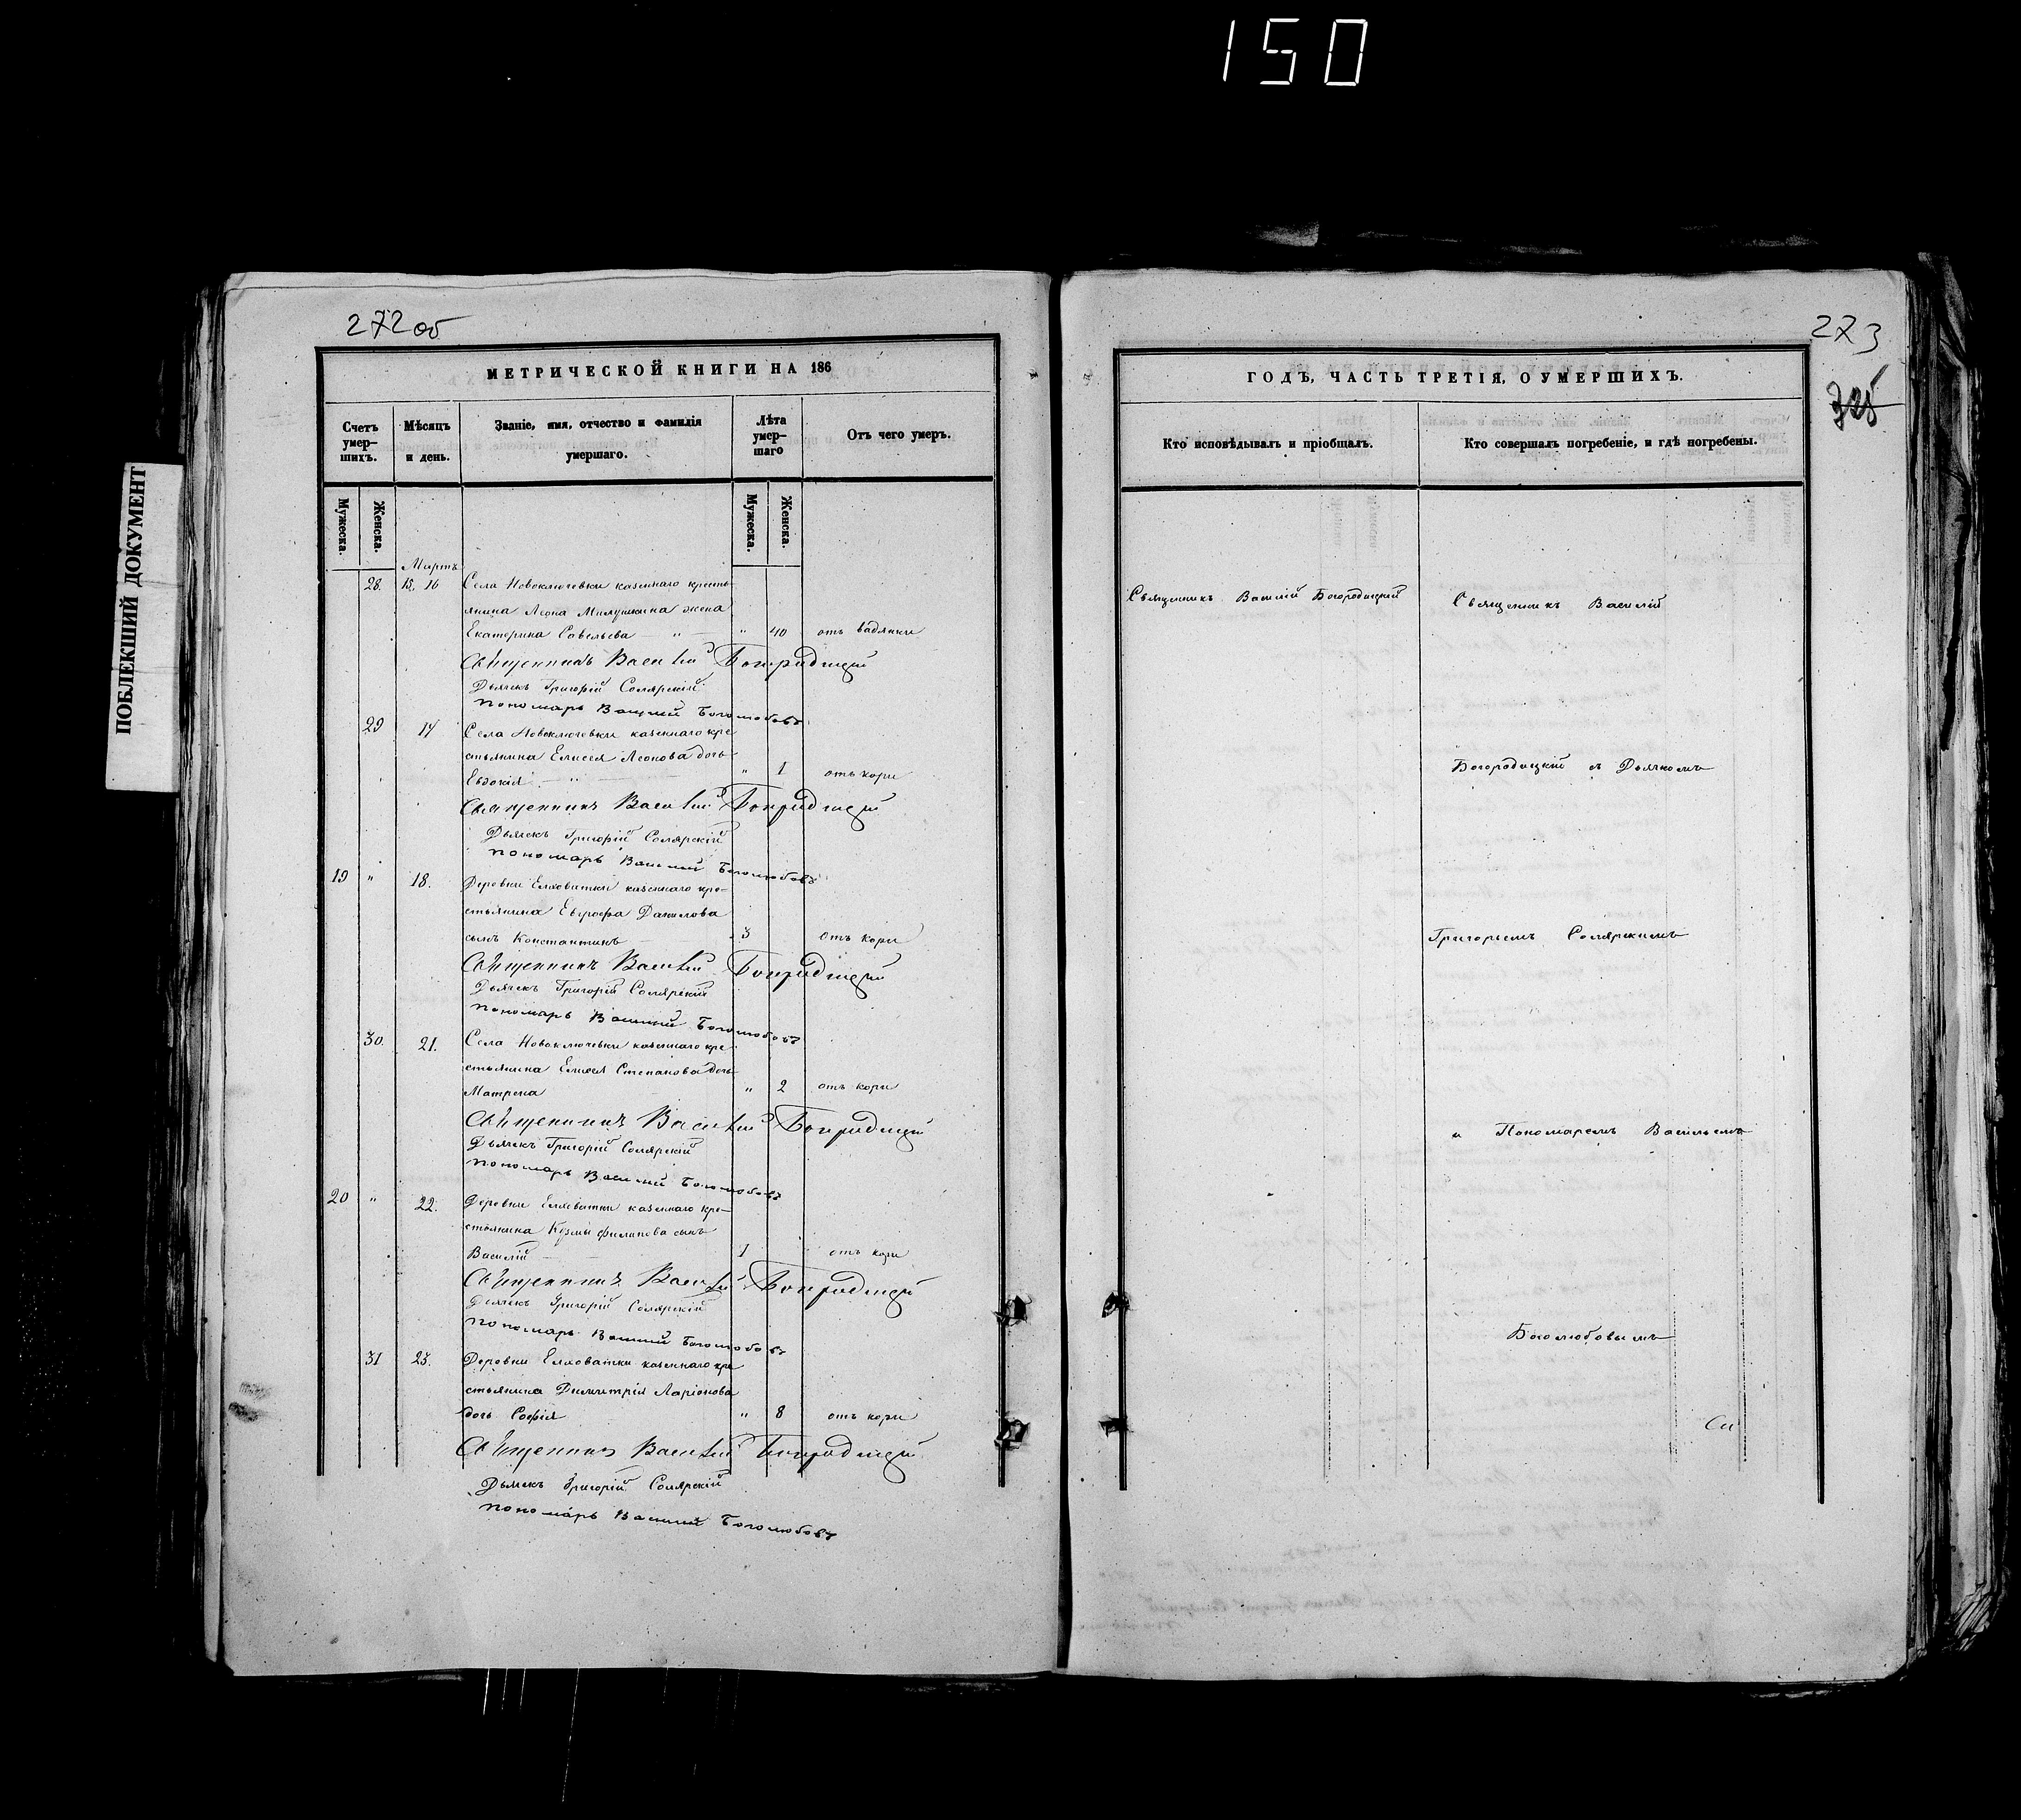 150
ПОБЛЕКШИЙ ДОКУМЕНТ
272 об
МЕТРИЧЕСКОЙ КНИГИ НА 186
Счетъ умер-шихъ.
Мѣсяцъ и день.
Званіе, имя, отчество и фамилія умершаго.
Лѣта умер-шаго
Отъ чего умеръ.
Мужеска. Женска. Мужеска. Женска.
Мартъ
28. 15, 16 Села Новоключевки казеннаго кресть-
янина Леона Милушкина жена
Екатерина Савельева " " 40 отъ водянки
Священникъ Василій Богородицкій
Дьячекъ Григорій Солярскій
Пономарь Василій Боголюбовъ
29 17 Села Новоключевки казеннаго кре
стьянина Елисея Леонова дочь
Евдокія " " 1 отъ кори
Священникъ Василій Богородицкій
Дьячекъ Григорій Солярскій
Пономарь Василій Боголюбовъ
19 " 18. Деревни Елховатки казеннаго кре-
стьянина Евграфа Данилова
сынъ Константинъ 3 отъ кори
Священникъ Василій Богородицкій
Дьячекъ Григорій Солярскій
Пономарь Василій Боголюбовъ
30. 21. Села Новоключевки казеннаго кре
стьянина Елисея Степанова дочь
Матрена " 2 отъ кори
Священникъ Василій Богородицкій
Дьячекъ Григорій Солярскій
Пономарь Василій Боголюбовъ
20 " 22. Деревни Елховатки казеннаго кре-
стьянина Кузмы Филипова сынъ
Василій 1 отъ кори
Священникъ Василій Богородицкій
Дьячекъ Григорій Солярскій
Пономарь Василій Боголюбовъ
31 23. Деревни Елховатки казеннаго кре
стьянина Димитрія Ларіонова
дочь Софія " 8 отъ кори
Священникъ Василій Богородицкій
Дьячекъ Григорій Солярскій
Пономарь Василій Боголюбовъ
273
325
ГОДЪ, ЧАСТЬ ТРЕТІЯ, О УМЕРШИХЪ.
Кто исповѣдывалъ и пріобщалъ.
Кто совершалъ погребеніе, и гдѣ погребены.
Священникъ Василій Богородицкій
Священникъ Василій
Богородицкій съ Дьячкомъ
Григорьемъ Солярскимъ
и Пономаремъ Васильемъ
Боголюбовымъ